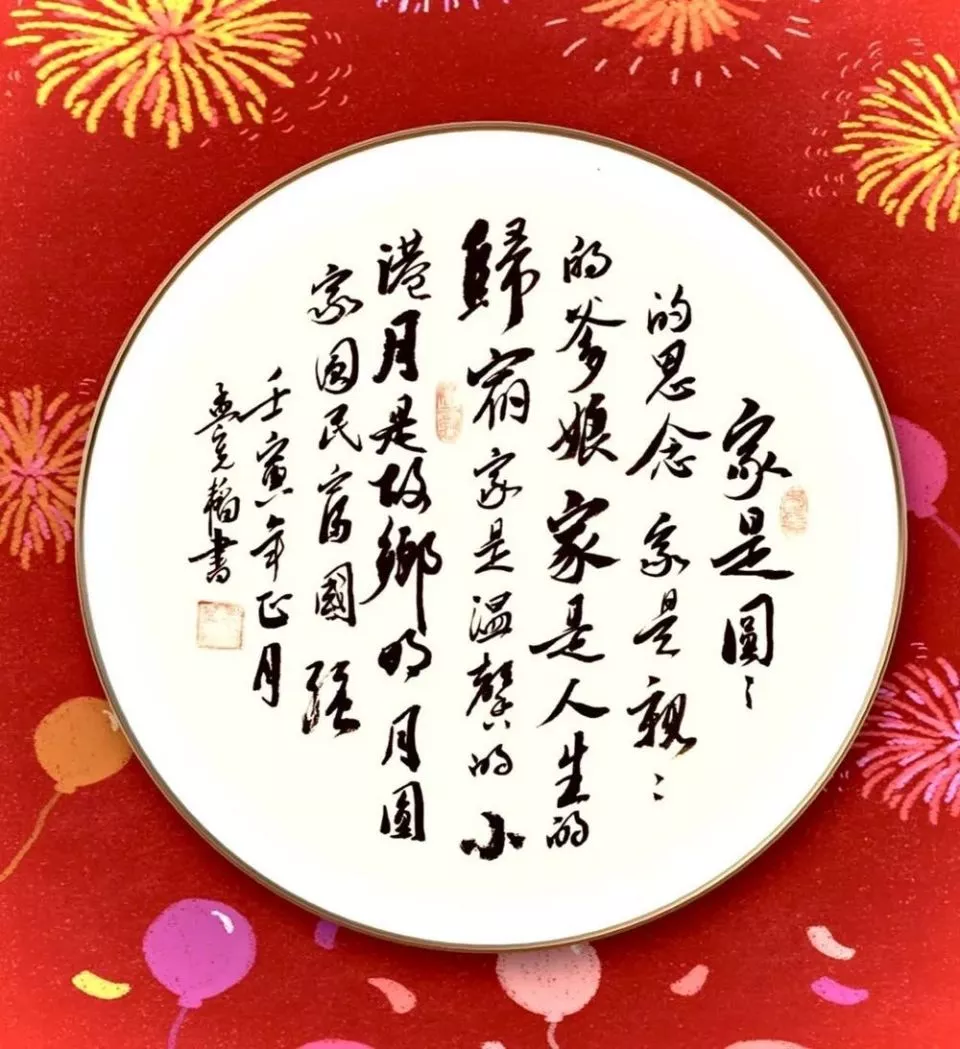 家是圓々
的思念家是親々
的爹娘家是人生的
歸宿家是温馨的小
港月是故鄉明月圓
家圓民富國強
壬寅年正月
孟克韜書